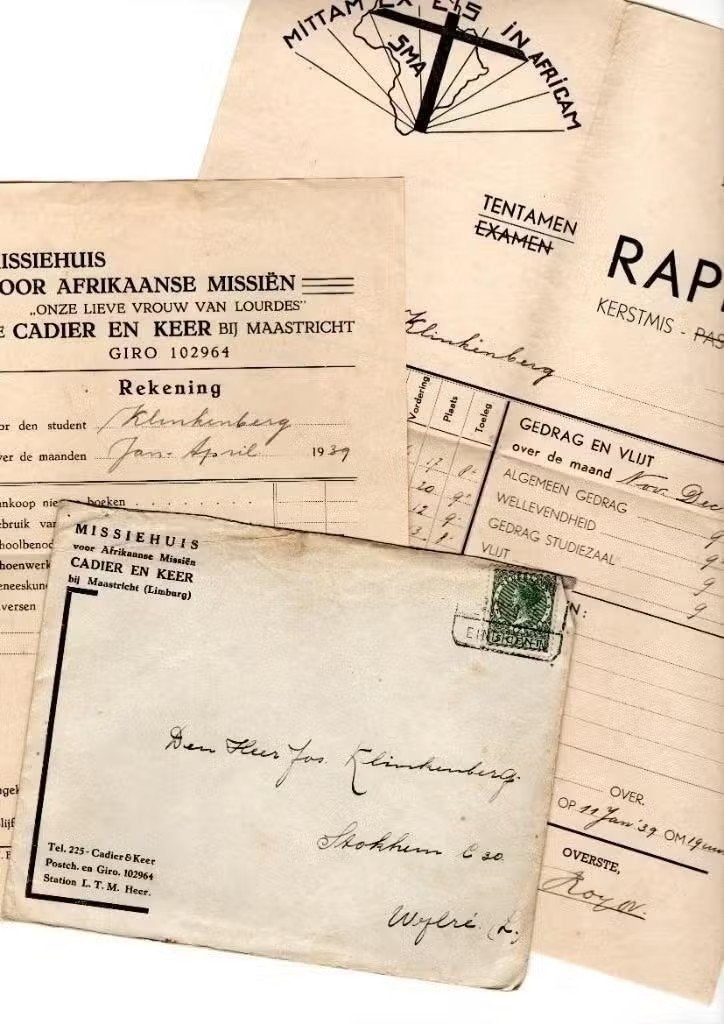 MITTAM EX EIS IN AFRICAM
SMA
TENTAMEN
EXAMEN
RAP
KERSTMIS - PAS
Klinkenberg
Vordering
Plaats
Toeleg
17 8
20 9
12 9
3 8
GEDRAG EN VLIJT
over de maand Nov. Dec
ALGEMEEN GEDRAG 9
WELLEVENDHEID 9
GEDRAG STUDIEZAAL 9
VLIJT 9
N:
OVER.
OP 11 Jan '39 OM 19 uur
OVERSTE,
ISSIEHUIS
OOR AFRIKAANSE MISSIËN
„ONZE LIEVE VROUW VAN LOURDES"
E CADIER EN KEER BIJ MAASTRICHT
GIRO 102964
Rekening
or den student Klinkenberg
ver de maanden Jan - April 1939
nkoop nie boeken
ebruik van
hoolbenod
hoenwerk
eneeskun
versen
MISSIEHUIS
voor Afrikaanse Missiën
CADIER EN KEER
bij Maastricht (Limburg)
EINDHOVEN
Den Heer Jos. Klinkenberg.
Stokhem C 30
Wijlré (L.)
Tel. 225 - Cadier & Keer
Postch. en Giro. 102964
Station L. T. M. Heer.